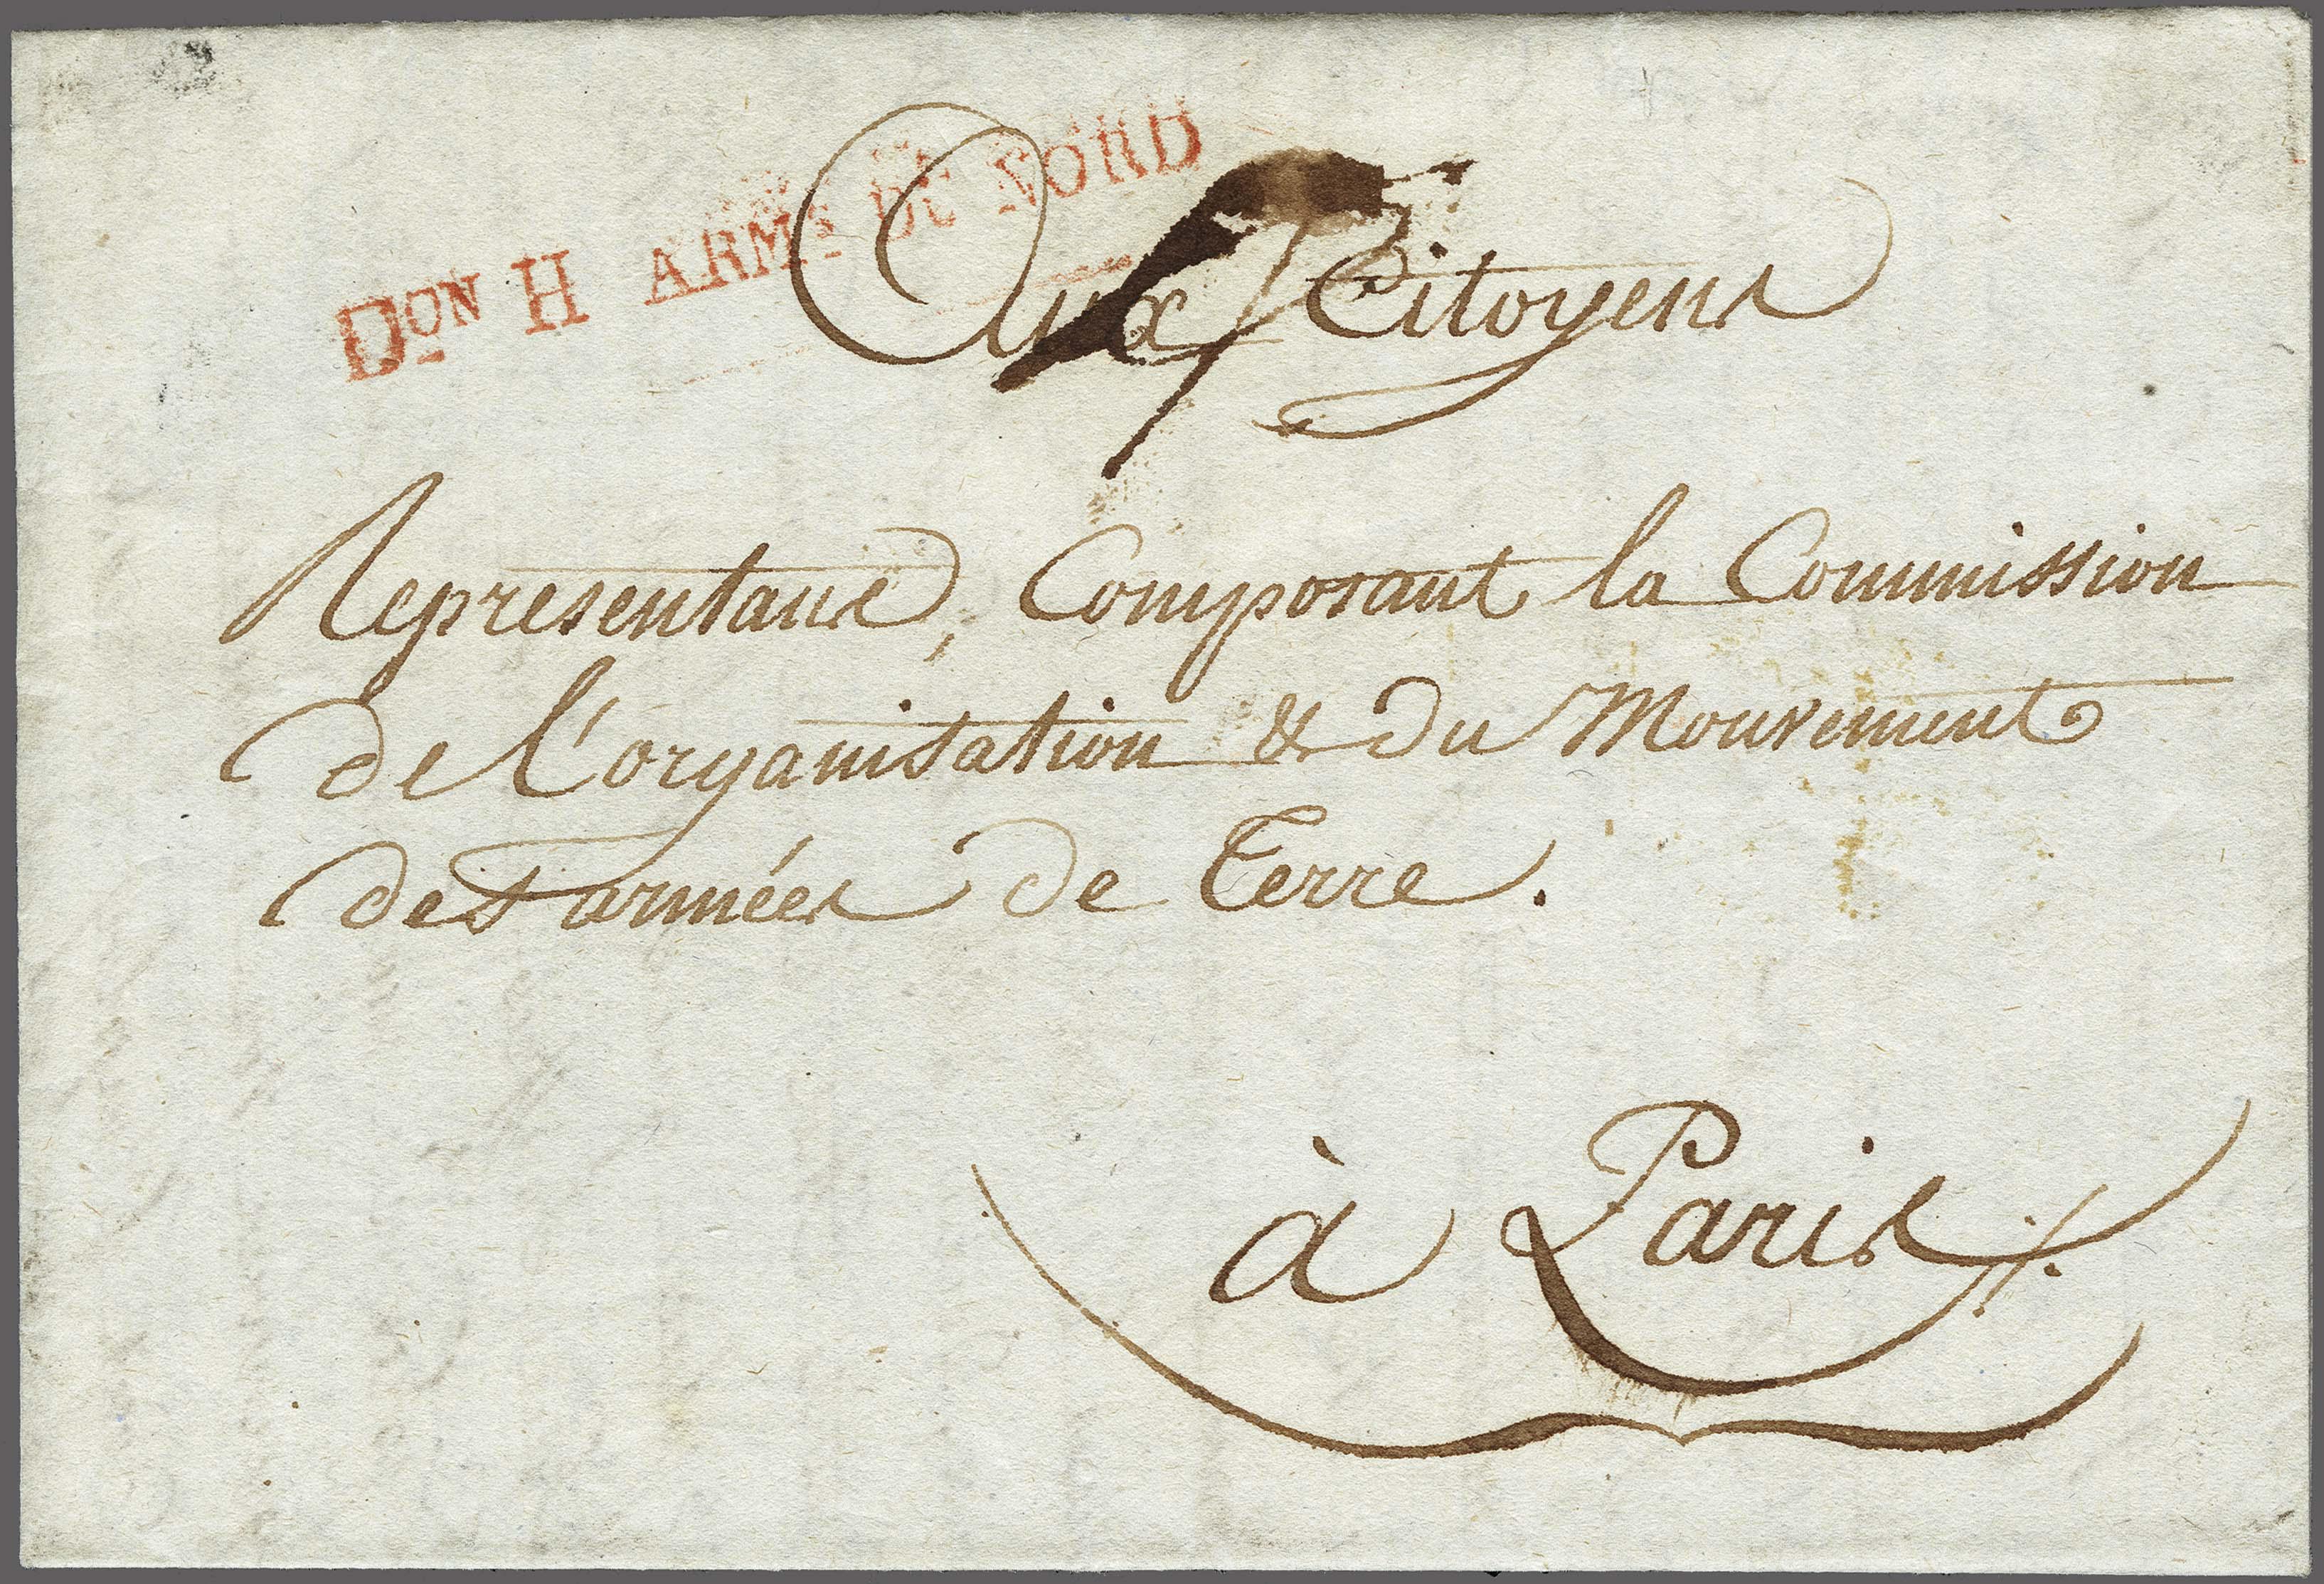 DON H ARMS DU NORD
Aux Citoyens
Representans, Composant la Commission
de l'organisation & du Mouvement
des armées de Terre.
à Paris